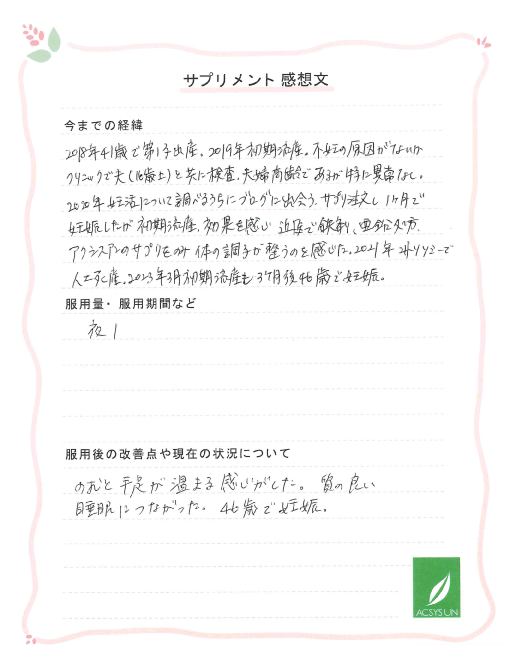 サプリメント 感想文
今までの経緯
2018年41歳で第1子出産。2019年初期流産。不妊の原因がないか
クリニックで夫(16歳上)と共に検査。夫婦高齢であるが特に異常なし。
2020年妊活について調べるうちにブログに出会う。サプリ注文し1ヶ月で
妊娠したが初期流産。効果を感じ 近医で鉄剤、亜鉛処方
アクシスアンのサプリものみ 体の調子が整うのを感じた。2021年
人工死産。2023年3月初期流産も3ヶ月後46歳で妊娠。
服用量・服用期間など
夜 1
服用後の改善点や現在の状況について
のむと 手足が 温まる 感じがした。 質の良い
睡眠につながった。 46歳で妊娠。
ACSYSUN